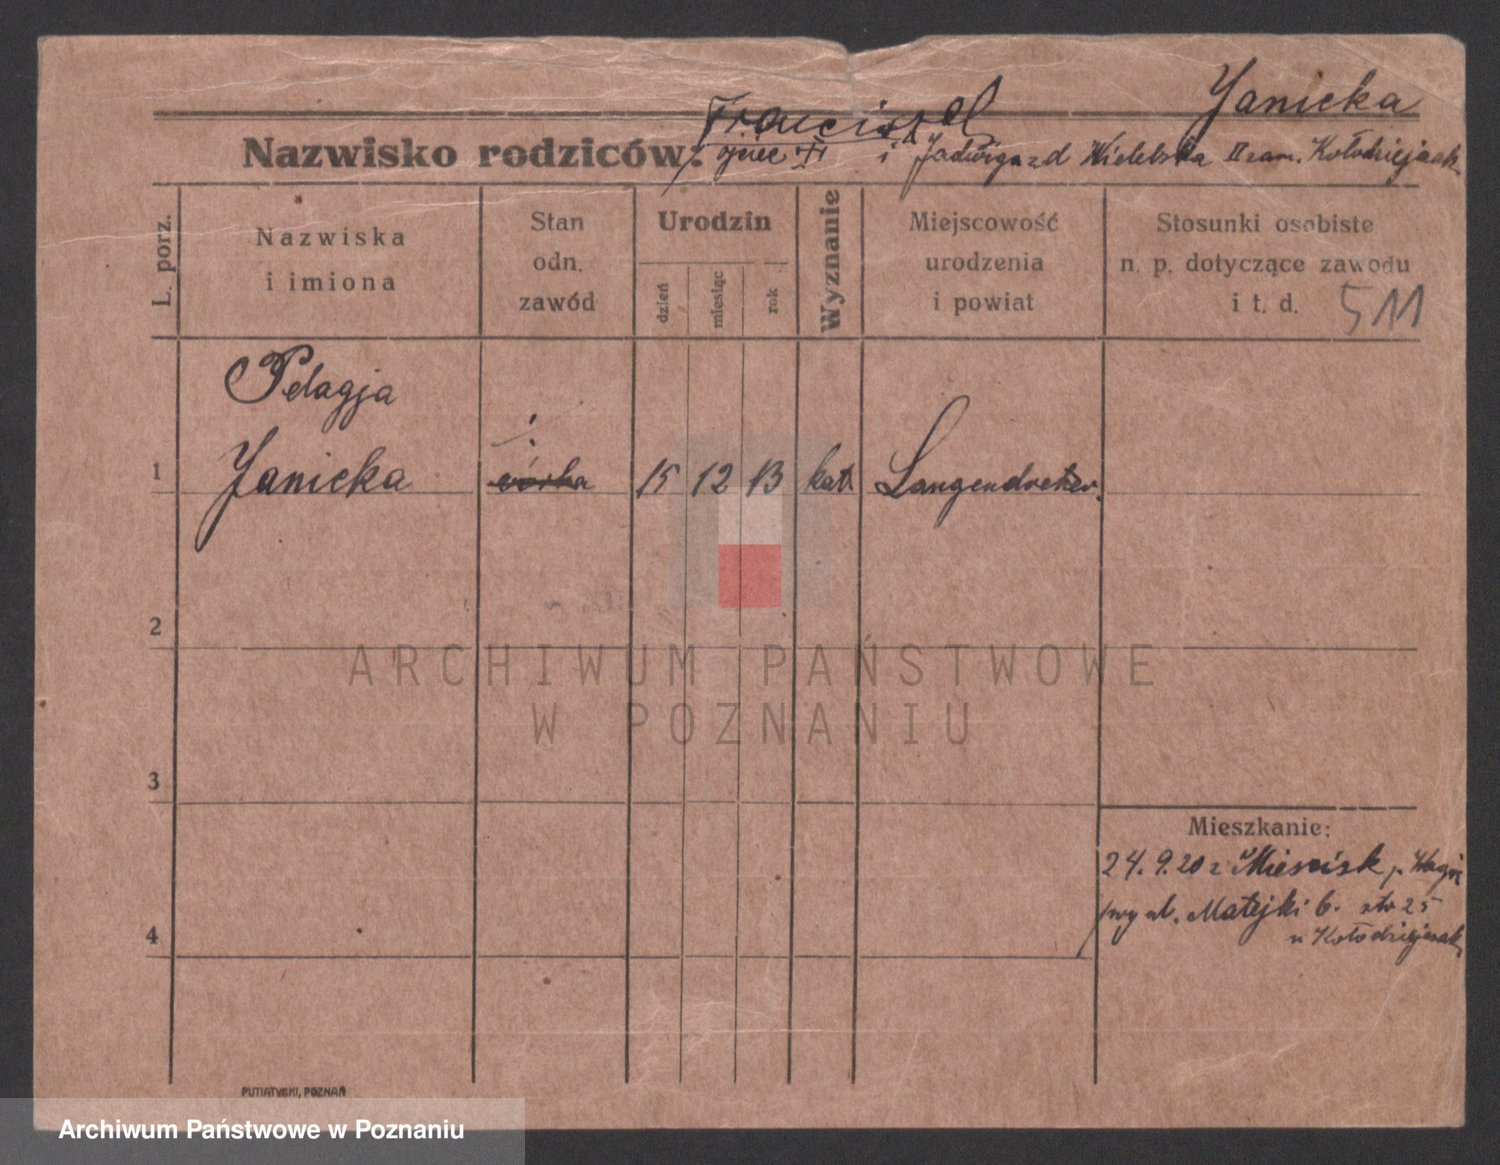 Janicka
Franciszek
Nazwisko rodziców: ojciec i Jadwiga zd Wielebska II zam. Kołodziejczak
L. porz.
Nazwiska
i imiona
Stan
odn.
zawód
Urodzin
dzień
miesiąc
rok
Wyznanie
Miejscowość
urodzenia
i powiat
Stosunki osobiste
n. p. dotyczące zawodu
i t. d.
511
Pelagja
1 Janicka córka 15 12 13 kat. Langendreer.
2
ARCHIWUM PAŃSTWOWE
W POZNANIU
3
Mieszkanie:
24.9.20 z p. Wągr.
ul. Matejki 6. 25
4
u Kołodziejczak
PUTIATYCKI, POZNAŃ
Archiwum Państwowe w Poznaniu